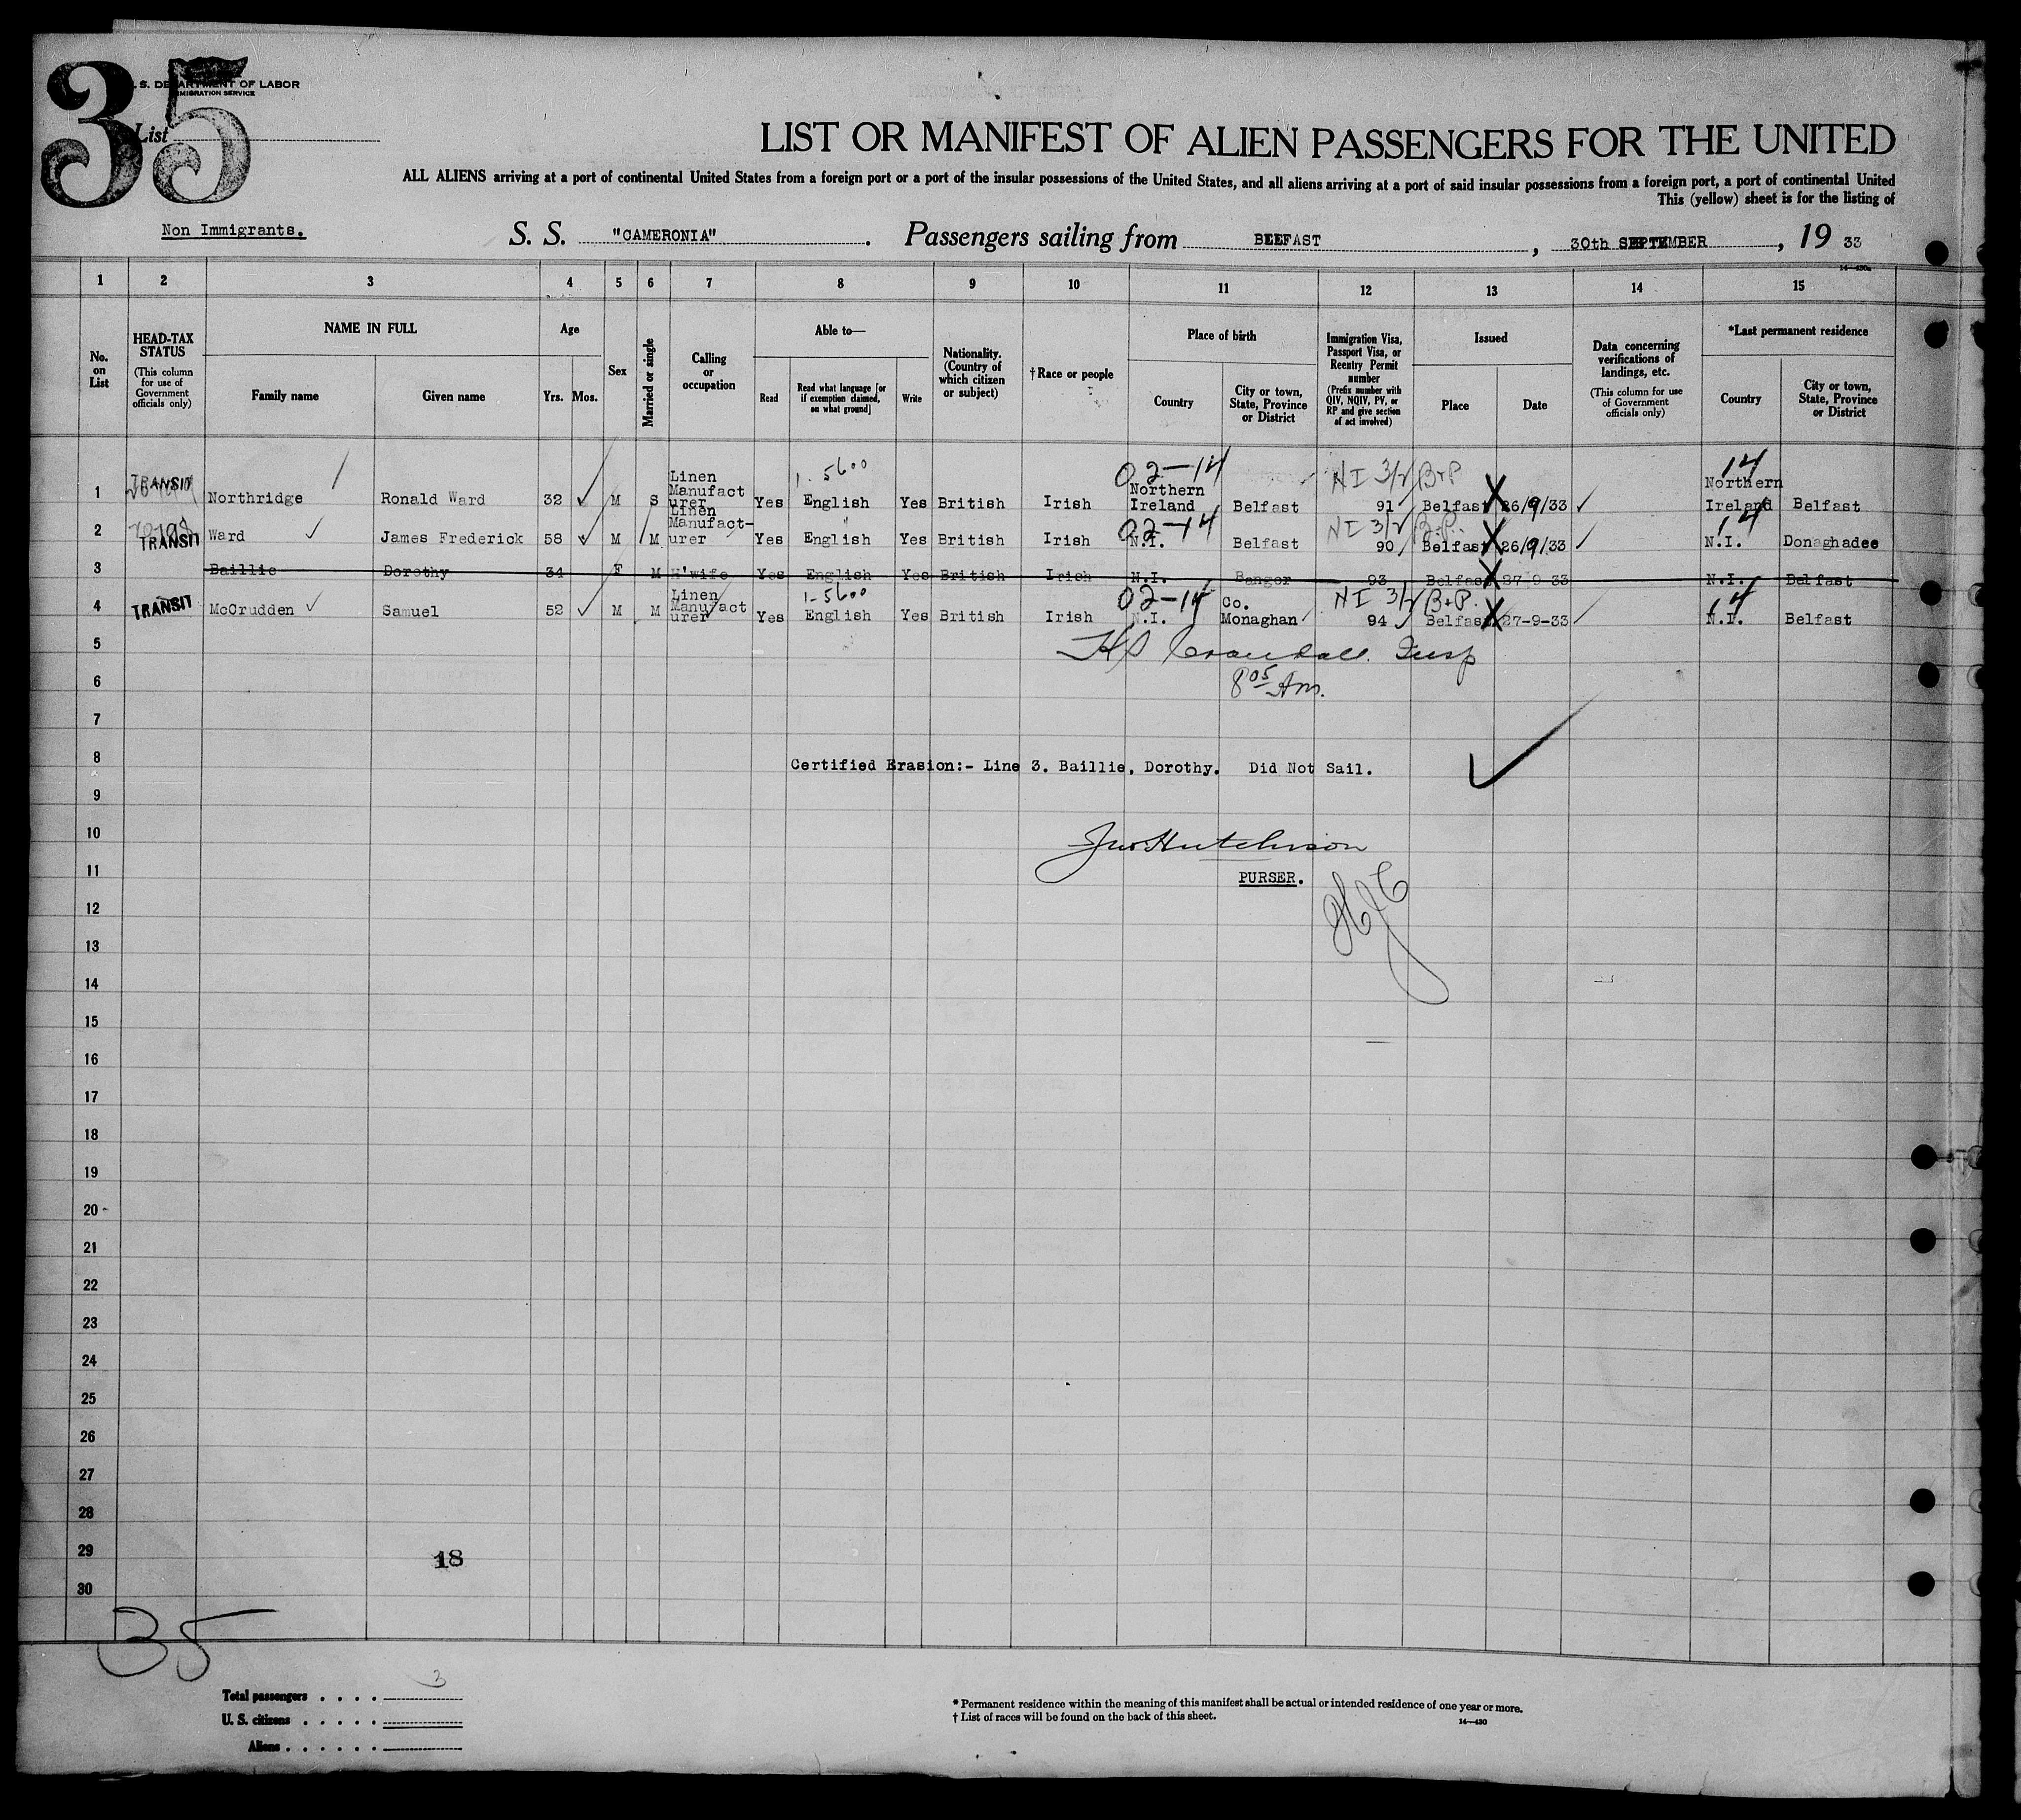 35
U. S. DEPARTMENT OF LABOR
IMMIGRATION SERVICE
List
LIST OR MANIFEST OF ALIEN PASSENGERS FOR THE UNITED
ALL ALIENS arriving at a port of continental United States from a foreign port or a port of the insular possessions of the United States, and all aliens arriving at a port of said insular possessions from a foreign port, a port of continental United
This (yellow) sheet is for the listing of
Non Immigrants. S. S. "CAMERONIA" . Passengers sailing from BELFAST , 30th SEPTEMBER , 19 33
14—430a
1 2 3 4 5 6 7 8 9 10 11 12 13 14 15
No. on List
HEAD-TAX STATUS (This column for use of Government officials only)
NAME IN FULL Family name Given name
Age Yrs. Mos.
Sex
Married or single
Calling or occupation
Able to— Read Read what language [or if exemption claimed, on what ground] Write
Nationality. (Country of which citizen or subject)
†Race or people
Place of birth Country City or town, State, Province or District
Immigration Visa, Passport Visa, or Reentry Permit number (Prefix number with QIV, NQIV, PV, or RP and give section of act involved)
Issued Place Date
Data concerning verifications of landings, etc. (This column for use of Government officials only)
*Last permanent residence Country City or town, State, Province or District
1 TRANSIT Northridge Ronald Ward 32 M S Linen Manufact urer Yes 1-5600 English Yes British Irish 02-14 Northern Ireland Belfast NI 3/2 B+P 91 Belfast 26/9/33 14 Northern Ireland Belfast
2 TRANSIT Ward James Frederick 58 M M Linen Manufact- urer Yes English Yes British Irish 02-14 N.I. Belfast NI 3/2 B.P. 90 Belfast 26/9/33 14 N.I. Donaghadee
3 Baillie Dorothy 34 F M H'wife Yes English Yes British Irish N.I. Bangor 93 Belfast 27-9-33 N.I. Belfast
4 TRANSIT McCrudden Samuel 52 M M Linen Manufact urer Yes 1-5600 English Yes British Irish 02-14 N.I. Co. Monaghan NI 3/2 B+P. 94 Belfast 27-9-33 14 N.I. Belfast
5 Crandall Insp
6 8 05 Am.
7
8 Certified Erasion:- Line 3. Baillie, Dorothy. Did Not Sail.
9
10 Jno Hutchison
11 PURSER.
12
13
14
15
16
17
18
19
20
21
22
23
24
25
26
27
28
29 18
30
35
Total passengers . . . . 3
U. S. citizens . . . . .
Aliens . . . . . .
* Permanent residence within the meaning of this manifest shall be actual or intended residence of one year or more.
† List of races will be found on the back of this sheet.
14—430